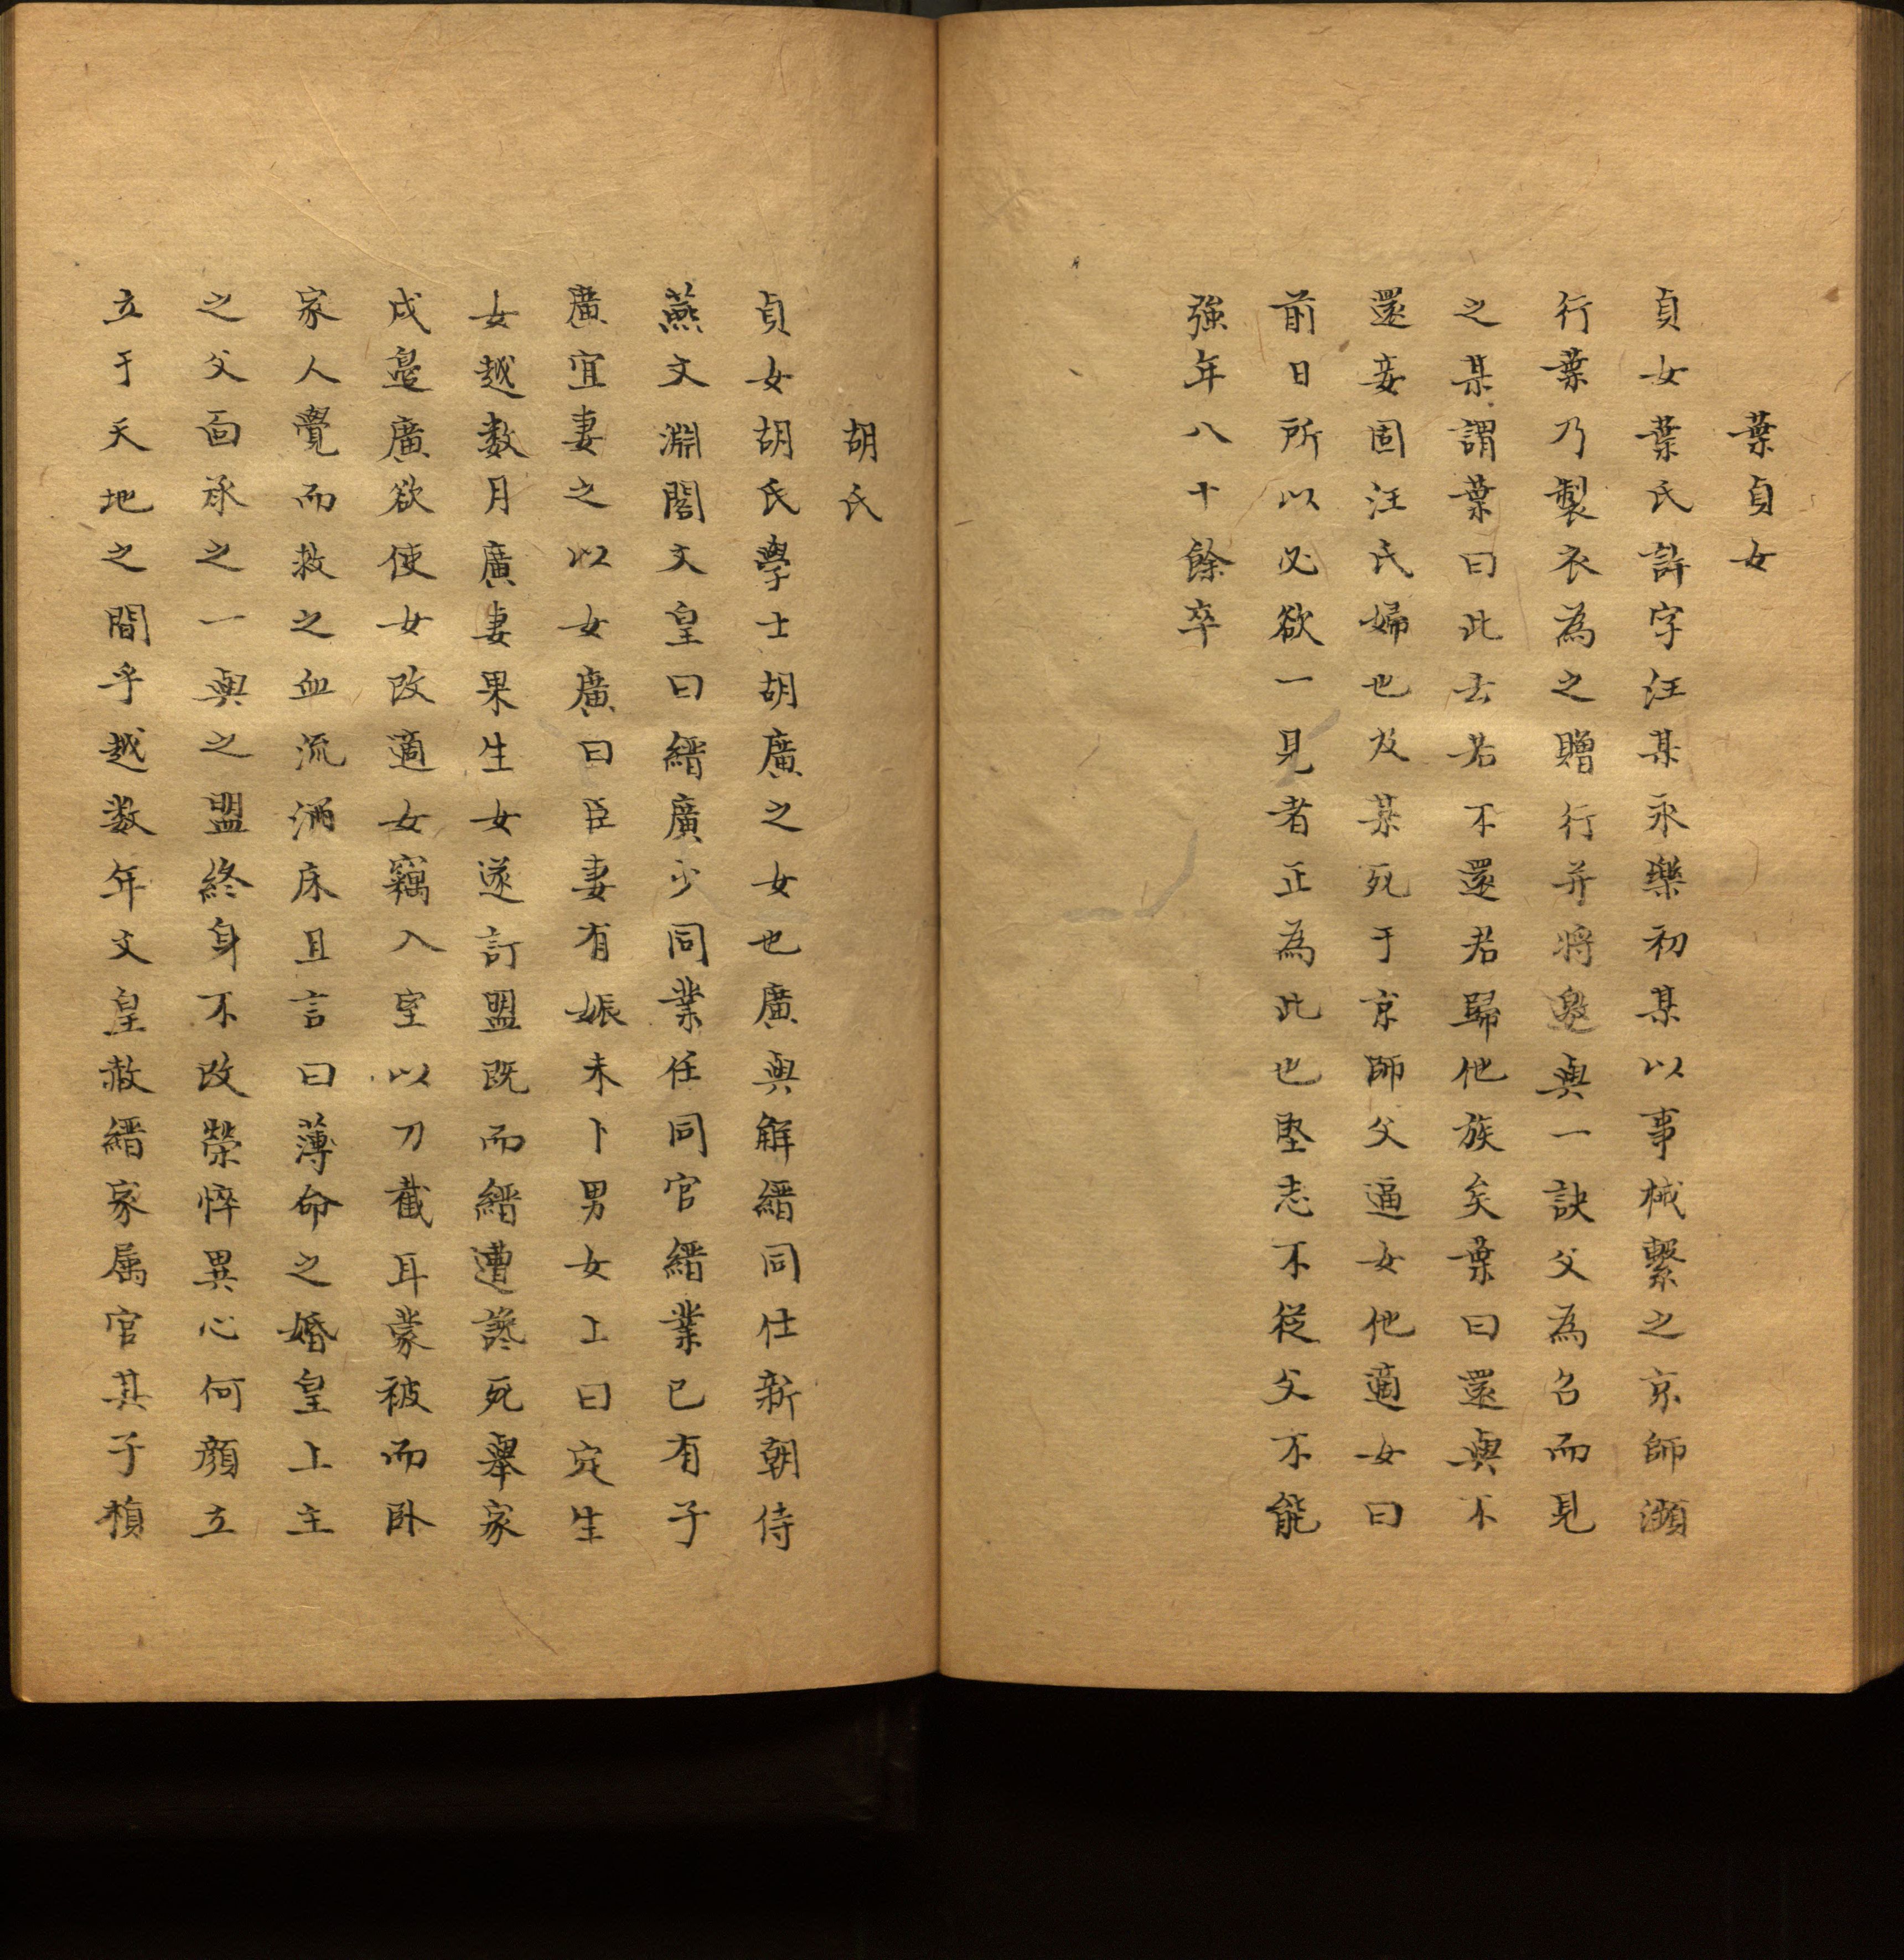 葉貞女
貞女葉氏許字汪某永樂初某以事械繫之京師瀕
行葉乃製衣為之贈行并將邀與一訣父為召而見
之某謂葉曰此去若不還若歸他族矣葉曰還與不
還妾固汪氏婦也及某死于京師父逼女他適女曰
前日所以必欲一見者正為此也堅志不從父不能
強年八十餘卒
胡氏
貞女胡氏學士胡廣之女也廣與解縉同仕新朝侍
燕文淵閣文皇曰縉廣少同業仕同官縉業已有子
廣宜妻之以女廣曰臣妻有娠未卜男女上曰定生
女越数月廣妻果生女遂訂盟既而縉遭讒死舉家
戍邊廣欲使女改適女竊入室以刀截耳蒙被而臥
家人覺而救之血流滿床且言曰薄命之婚皇上主
之父面承之一與之盟終身不改榮悴異心何顏立
立于天地之間乎越数年文皇赦縉家属官其子禎